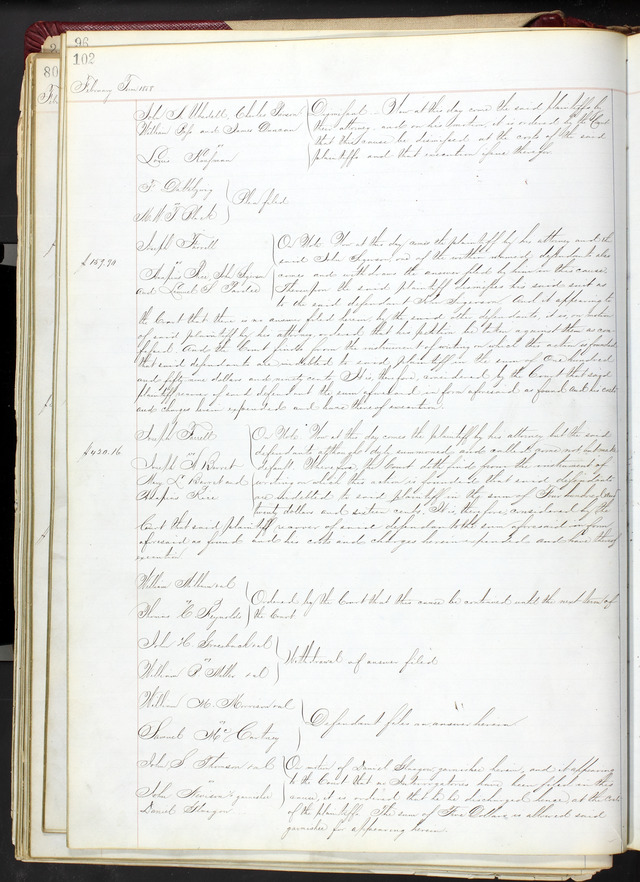 96
102
80
February Term 1858
John S. Charles
William and James Duncan
vs
Louis Kaufman
Dismissed Now at this day come the said plaintiffs by
their attorney and on his motion it is ordered by the Court
that this cause be dismissed at the costs of the said
plaintiffs and that execution issue therefor
F.
vs
M. W. F. Block
Plea filed
$159.90
Joseph
vs
Rice John
and Lewis S.
On Note Now at this day comes the plaintiff by his attorney and the
said John one of the within named defendants also
comes and withdraws the answer filed by him in this cause
Thereupon the said plaintiff dismisses his said suit as
to the said defendant John And it appearing to
the Court that there is no answer filed herein by the said other defendants it is on motion
of said plaintiff by his attorney ordered that his petition be taken against them as con-
fessed. And the Court finds from the instrument of writing on which the action is founded
that said defendants are indebted to said plaintiff in the sum of One hundred
and fifty nine dollars and ninety cents It is, therefore, considered by the Court that said
plaintiff recover of said defendants the sum aforesaid in form aforesaid as found and his costs
and charges herein expended and have thereof execution
$420.16
Joseph
vs
Joseph S.
Mary L. and
Rice
On Note Now at this day comes the plaintiff by his attorney but the said
defendants although solemnly called come not but make
default Wherefore, the Court doth find from the instrument of
writing on which the action is founded that said defendants
are indebted to said plaintiff in the sum of Four hundred and
twenty dollars and sixteen cents. It is, therefore, considered by the
Court that said plaintiff recover of said defendants the sum aforesaid in form
aforesaid as found and his costs and charges herein expended and have thereof
execution
William et al
vs
Thomas C. Reynolds
Ordered by the Court that this cause be continued until the next term of
the Court
John C. et al
vs
William P. Miller et al
Withdrawal of answer filed
William M. Morrison et al
vs
Samuel McCartney
Defendant files an answer herein
John S. Thomson et al
vs
John garnishee
Daniel
On motion of Daniel garnishee herein, and it appearing
to the Court that no Interrogatories have been filed in this
cause, it is ordered that he be discharged hence at the costs
of the plaintiffs The sum of Five Dollars, is allowed said
garnishee for appearing herein